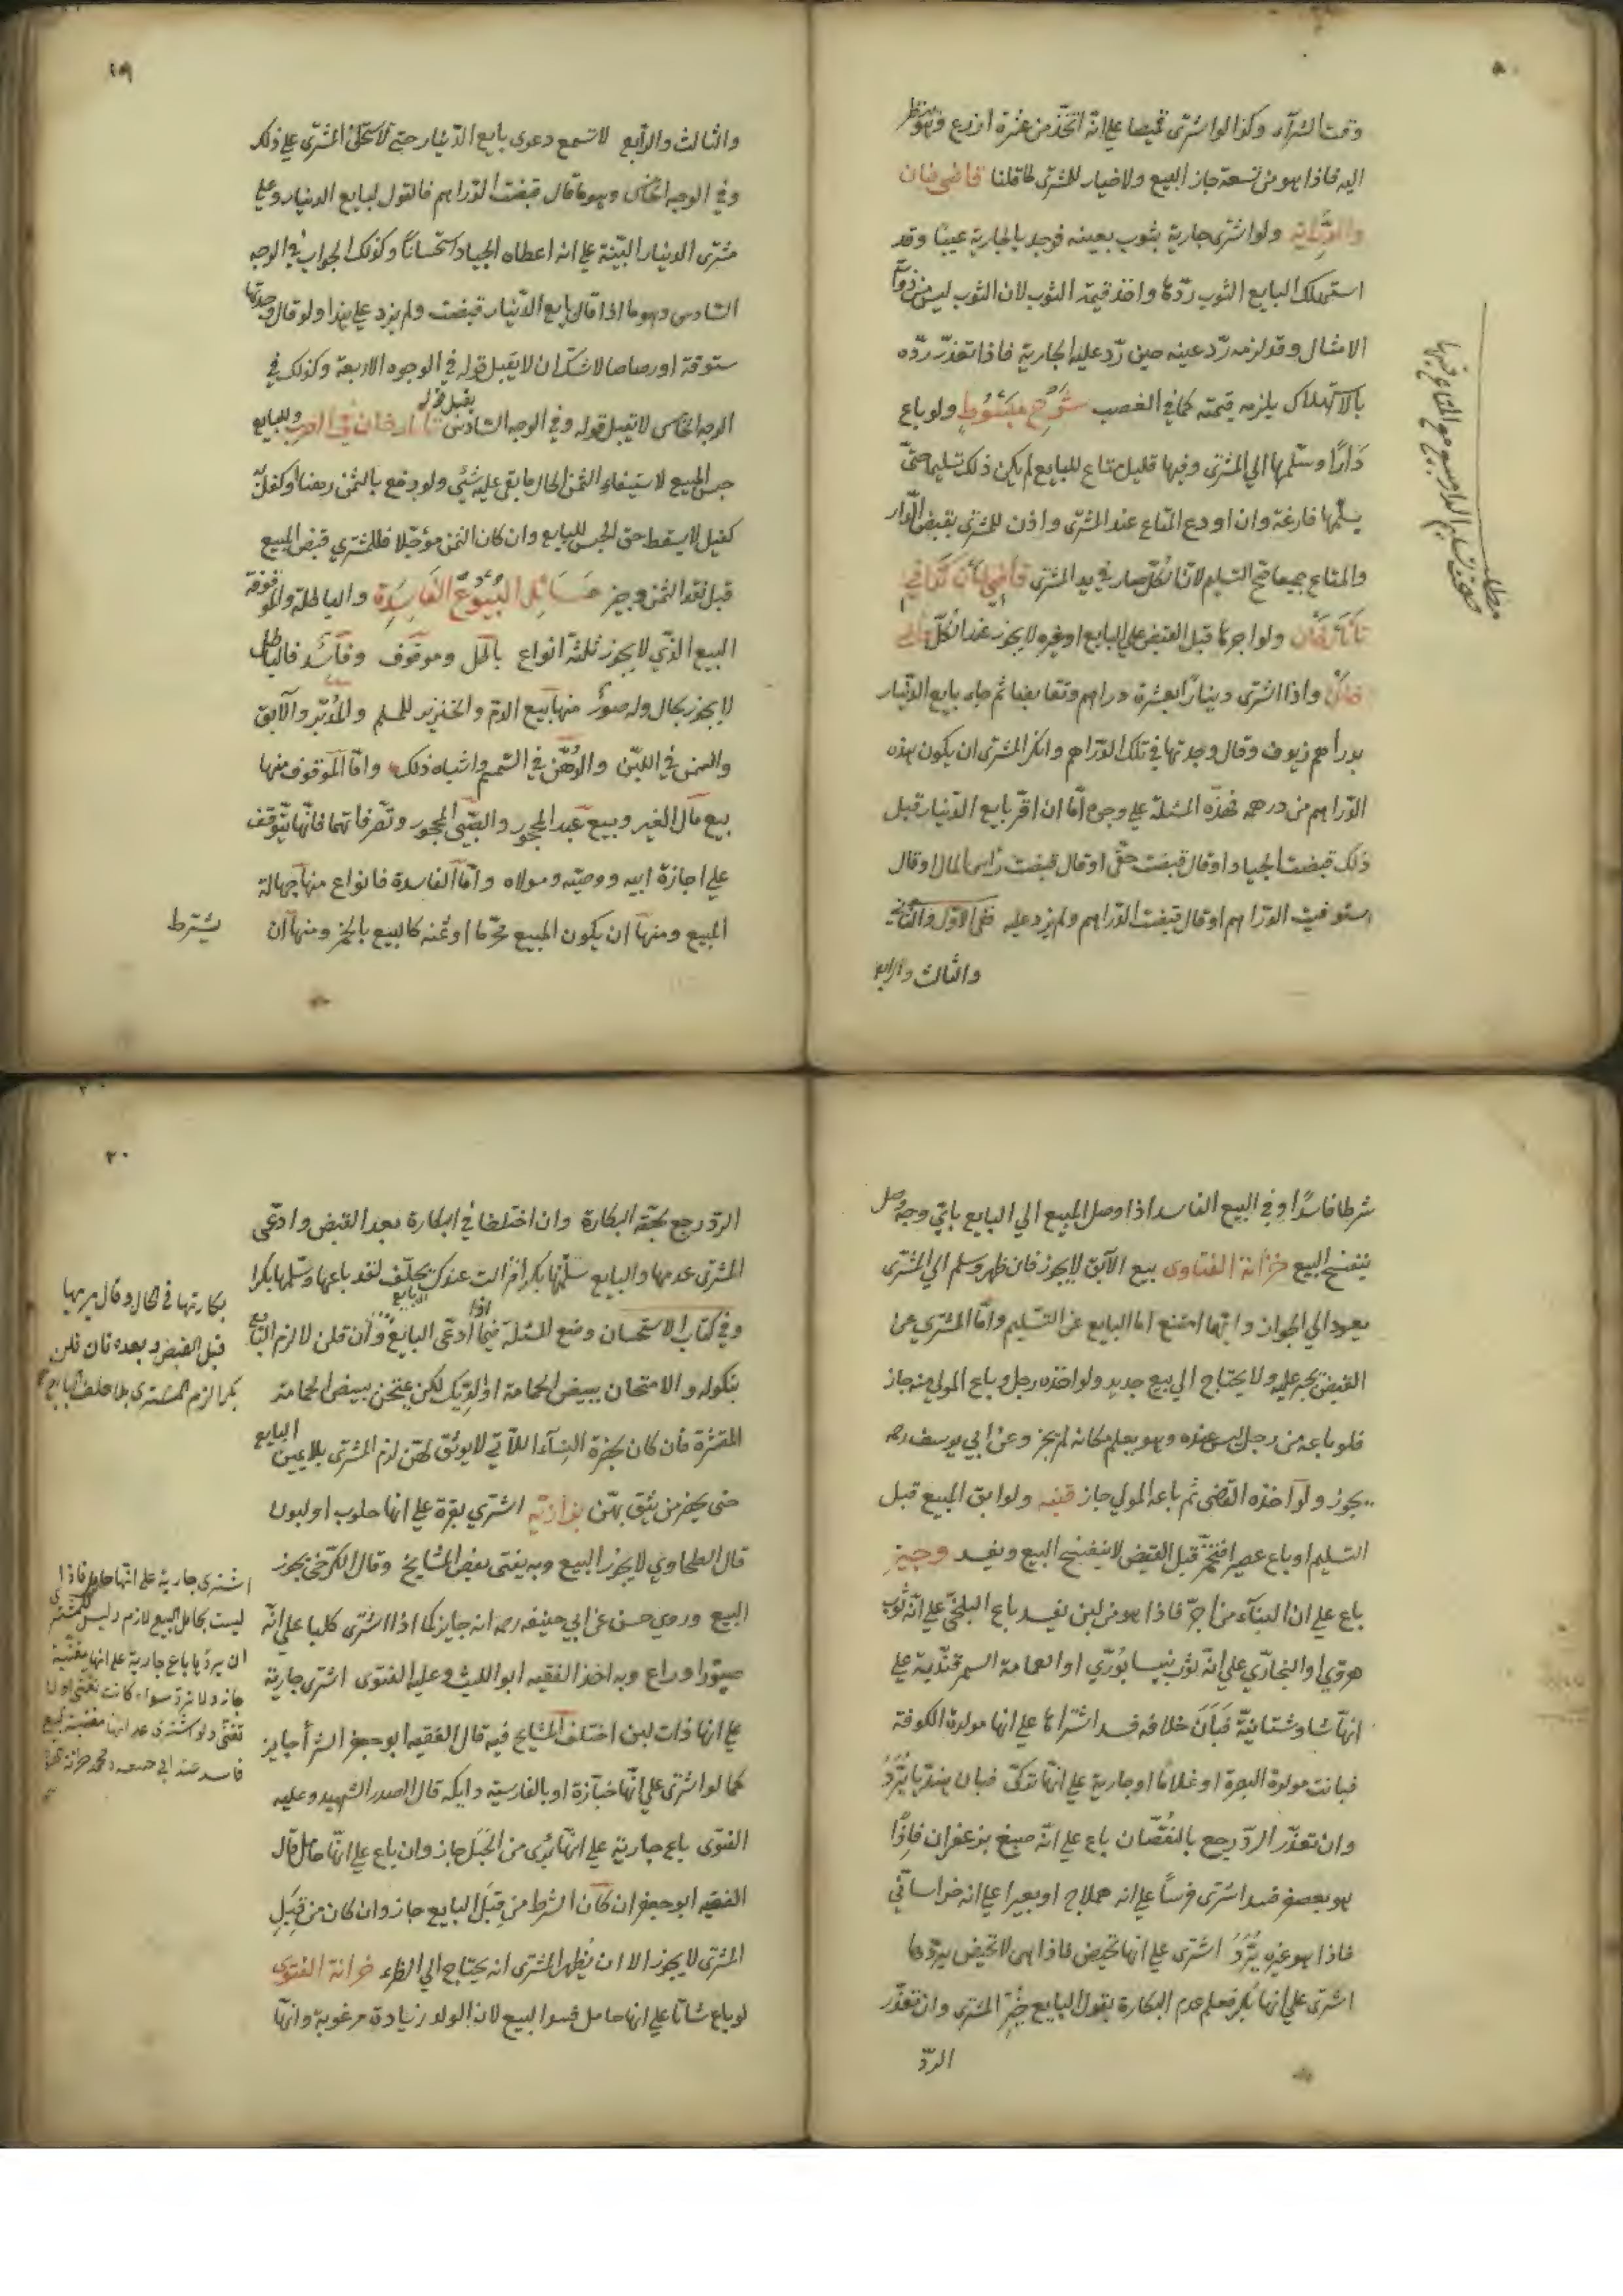 وقت الشرآء وكذا لو اشترى قميصا على انه اتخذ من عشرة اذرع وهو ينظر
اليه فاذا هو من تسعة جاز البيع ولا خيار للمشترى لما قلنا قاضى خان
ولو اشترى جارية بثوب بعينه فوجد بالجارية عيبًا وقد
استهلك البايع الثوب ردّها واخذ قيمة الثوب لان الثوب ليس من ذوات
الامثال وقد لزمه ردّ عينه حين ردّ عليه الجارية فاذا تعذّر ردّه
بالاستهلاك يلزمه قيمته كما في الغصب شرح مبسوط ولو باع
دارًا وسلّمها الي المشترى وفيها قليل متاع للبايع لم يكن ذلك تسليما حتّى
يسلّمها فارغة وان اودع المتاع عند المشترى واذن للمشترى بقبض الدّار
والمتاع جميعا صح التسليم لانّ الكلّ صار في يد المشترى
ولو اجرها قبل القبض على البايع او غيره لا يجوز عند الكلّ قاضى
خان واذا اشترى دينارًا بعشرة دراهم وتقابضا ثم جاء بايع الدّينار
بدراهم زيوف وقال وجدتها في تلك الدّراهم وانكر المشترى ان يكون هذه
الدّراهم من درهمه فهذه المسئلة على وجوه امّا ان اقرّ بايع الدّينار قبل
ذلك قبضت الجياد او قال قبضت حقّى او قال قبضت رأس المال او قال
استوفيت الدّراهم او قال قبضت الدّراهم ولم يزد عليه ففى الاوّل والثّانى
والثالث والرابع
١٩
والثالث والرّابع لا تسمع دعوى بايع الدّينار حتى لا يستحلف المشترى على ذلك
وفي الوجه الخامس وهو ما قال قبضت الدّراهم فالقول لبايع الدينار وعلى
مشترى الدينار البيّنة على انه اعطاه الجياد استحسانًا وكذلك الجواب في الوجه
السّادس وهو ما اذا قال بايع الدّينار قبضت ولم يزد على هذا ولو قال وجدتها
ستوقة او رصاصا لا شكّ ان لا يقبل قوله في الوجوه الاربعة وكذلك في
الوجه الخامس لا تقبل قوله وفي الوجه السّادس يقبل قوله وللبايع
حبس المبيع لاستيفاء الثمن الحال ما بقى عليه شئ ولو دفع بالثمن رهنا او كفل
كفيل لا يسقط حق الحبس للبايع وان كان الثمن مؤجّلا فللمشتري قبض المبيع
قبل نقد الثمن وجيز مسائل البيوع الفاسدة والباطلة والموقوفة
البيع الذّي لا يجوز ثلثة انواع باطل وموقوف وفاسد فالباطل
لا يجوز بحال وله صورٌ منها بيع الدم والخنزير للمسلم والمدبّر والآبق
والسمن في اللبن والدّهن في السمسم واشباه ذلك وامّا الموقوف منها
بيع مال الغير وبيع عبد المحجور والصّبى المحجور وتصرفاتهما فانّها يتوقف
على اجازة ابيه ووصيّه ومولاه وامّا الفاسدة فانواع منها جهالة
المبيع ومنها ان يكون المبيع محرّما او ثمنه كالبيع بالخمر ومنها ان
يشترط
شرطا فاسدًا وفي البيع الفاسد اذا وصل المبيع الي البايع بايّ وجه وصل
ينفسخ البيع خزانة الفتاوى بيع الآبق لا يجوز فان ظهر وسلم الي المشترى
يعود الي الجواز وايّهما امتنع اما البايع عن التسليم وامّا المشتري عن
القبض يجبر عليه ولا يحتاج الي بيع جديد ولو اخذه رجل وباع المولي منه جاز
فلو باعه من رجل ليس عنده وهو يعلم مكانه لم يجز وعن ابي يوسف رحمه
يجوز ولو اخذه القضى ثم باعه المولي جاز قنيه ولو ابق المبيع قبل
التسليم او باع عصيرا فتخمّر قبل القبض لا ينفسخ البيع ويفسد وجيز
باع على ان البنآء من اجرّ فاذا هو من لبن يفسد باع البلخىّ على انّه ثوب
هروى او البخارى على انّه ثوب نيسابورى او العمامة السمرقندية على
انها شادشتانيّة فبان خلافه فسد اشتراها على انها مولدة الكوفة
فبانت مولدة البصرة او غلامًا او جارية على انها تركىّ فبان هنديا يُرَدُّ
وان تعذّر الردّ رجع بالنقصان باع على انّه صبغ بزعفران فاذا
هو بعصفر فسد اشترى فرسًا على انه هملاج او بعيرا على انه خراسانّى
فاذا هو غيره يُرَدُّ اشترى على انها تحيض فاذا هى لا تحيض يردّها
اشترى على انها بكر فعلم عدم البكارة بقول البايع خُيّر المشترى وان تعذّر
الردّ
٢٠
الردّ رجع بحصّة البكارة وان اختلفا في البكارة بعد القبض وادعّى
المشترى عدمها والبايع سلّمتها بكرا فزالت عندك يحلف لقد باعها وسلّمها بكرا
وفي كتاب الاستحسان وضع المسئلة فيما اذا ادعّى البايع وان قلن لا لزم البايع
بنكوله والامتحان ببيض الحمامة او الديك لكن يمتحن ببيض الحمامة
المقشرة فان كان بحضرة النسآء اللآتي لا يوثق لهنّ لزم المشترى بلا يمين البايع
حتى يحضر من يثق بهنّ بزازيّه اشترى بقرة على انها حلوب او لبون
قال الطحاوي لا يجوز البيع وبه يفتى بعض المشايخ وقال الكرخى يجوز
البيع وروي حسن عن ابي حنيفه رحمه انه جايز كما اذا اشترى كلبا على انّه
صيّورا وراع وبه اخذ الفقيه ابو الليث وعليه الفتوى اشترى جارية
على انها ذات لبن اختلف المشايخ فيه قال الفقيه ابو جعفر الشرأ جايز
كما لو اشترى على انّها خبّازة او بالفارسيّه دايكه قال الصدر الشهيد وعليه
الفتوى باع جارية على انها برئ من الحَبَل جاز وان باع على انّها حامل قال
الفقيه ابو جعفر ان كان الشرط من قِبَل البايع جاز وان كان من قبل
المشترى لا يجوز الا ان يُظهر المشترى انه يحتاج الي الظرء خزانة الفتوى
لو باع شاتًا على انها حامل فسد البيع لان الولد زيادة مرغوبة وانها
بكارتها في الحال وقال
قبل القبض وبعده فان قلن
بكرا لزم المشترى بلا حلف البايع
اشترى جارية على انّها حامل فاذا
ليست بحامل البيع لازم وليس للمشترى
ان يردّها باع جارية على انها مغنّية
جاز ولا ترد سواء كانت تغنى او لا
تغنى ولو اشترى على انها مغنية البيع
فاسد عند ابي حنيفه ومحمد